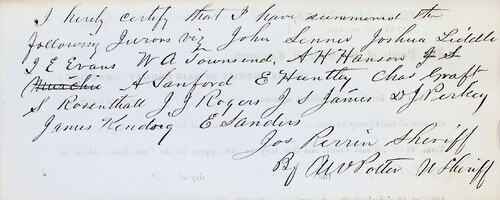 I hereby certify that I have summoned the
following Jurors viz John Senner Joshua Liddle
I E Evans W A Townsend, A H Hanson
A Sanford E Huntley Chas Graft
S Rosenthall J J Rogers J S James D J Perkey
James Kendrig E Sanders
Jos Perrin Sheriff
By A W Potter U Sheriff